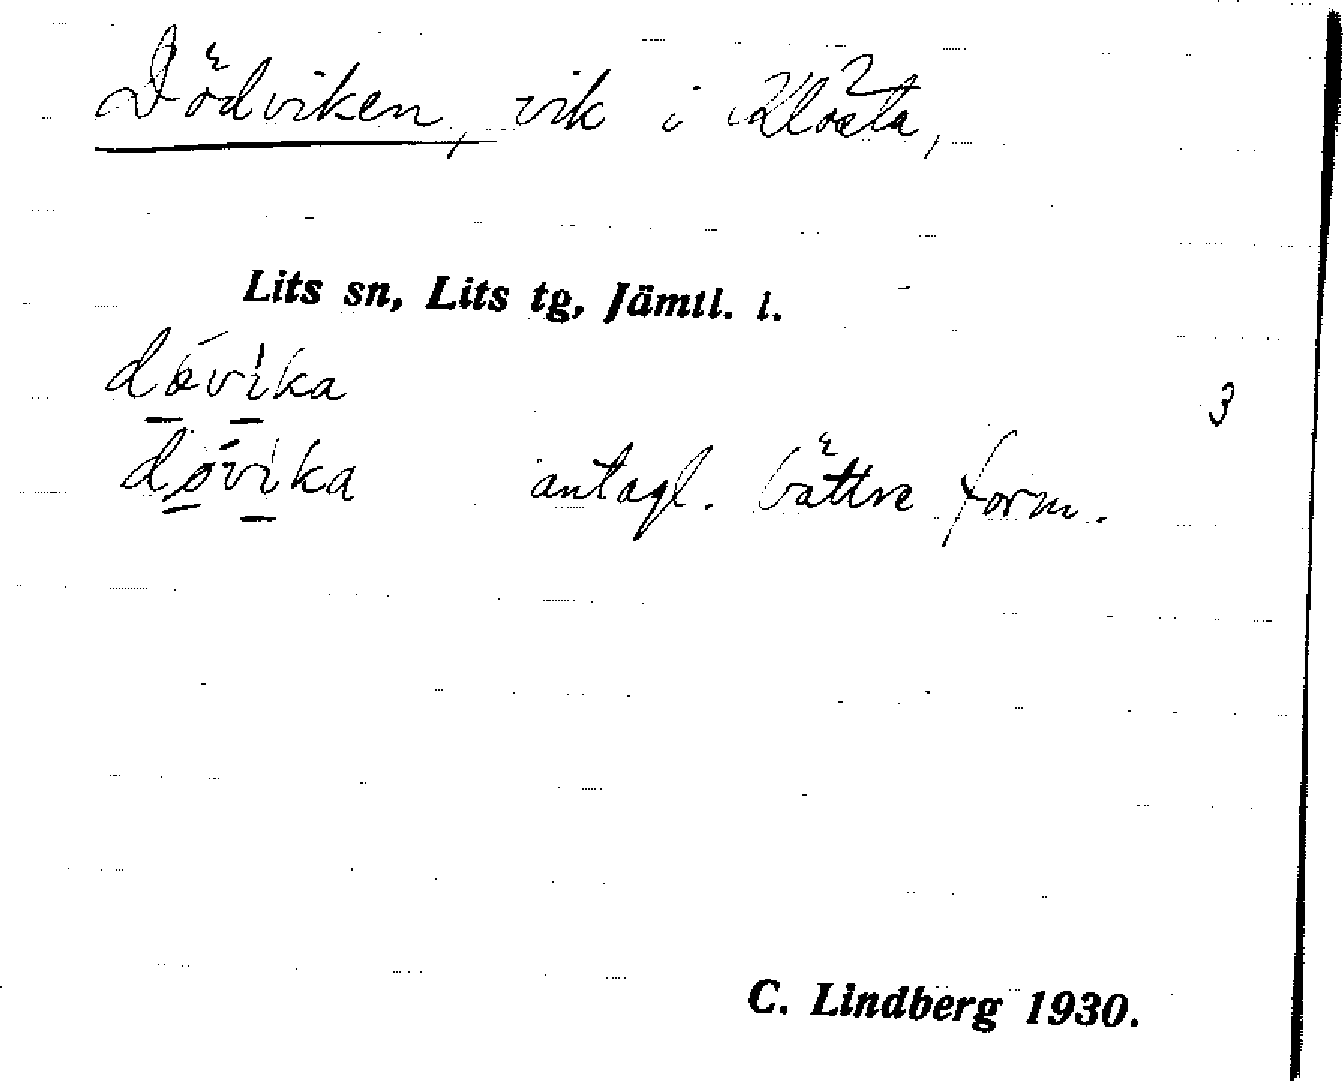 Dödviken, vik i Klösta,
Lits sn, Lits tg, Jämtl. l.
dǿvika
3
dǿvika antagl. bättre form.
C. Lindberg 1930.